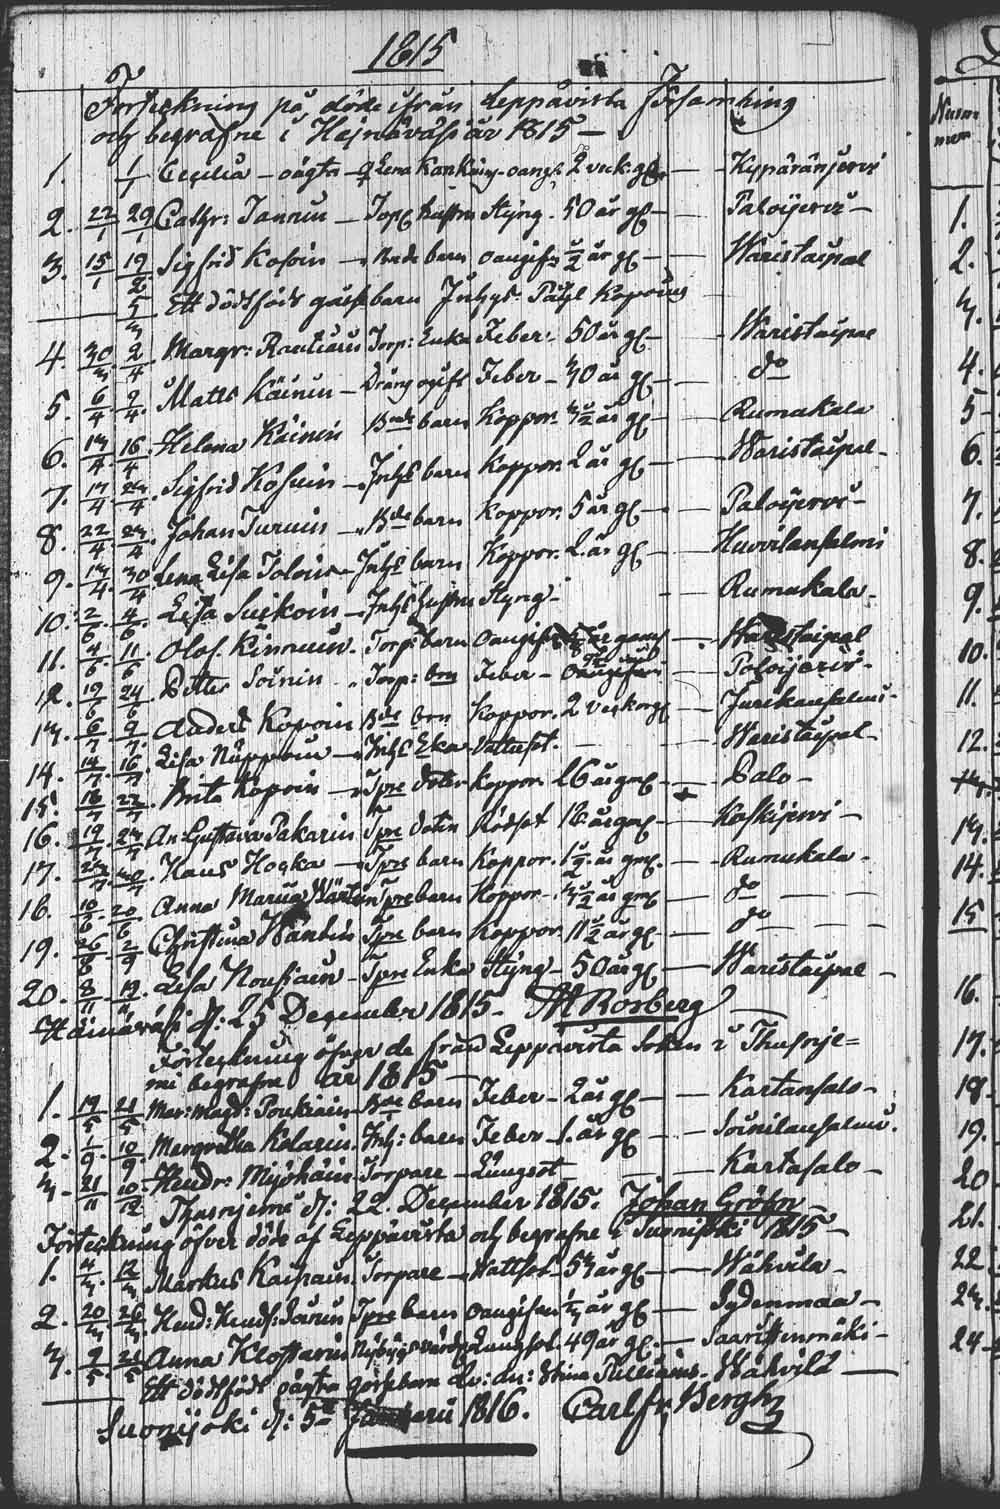 1815
Förteckning på döde ifrån Leppävirta Församling
och begrafne i Hainäväsi år 1815 —
1. 1/1 Cecilia — oägta — Lena Kankkuin — oangif. 2 veck. gl. — Kypäränjervi
2. 22/1 29/1 Cathr: Iannin — Torp. hustru Styng — 50 år gl — Paloijervi —
3. 15/1 19/2 Sigfrid Kosoin — Bonde barn oangifv. 1/2 år gl — Waristaipal
— 5/3 Ett dödfödt gåsse barn Inhys. Påhl Kopoins
4. 30/3 2/4 Margr: Rautiain Torp: Enka Feber — 50 år gl — Waristaipal
5. 6/4 9/4 Matts Käinin — Dräng ogift Feber — 30 år gl — do
6. 13/4 16/4 Helena Käinin Bonde barn Koppor. 3 1/2 år gl — Rumakala
7. 17/4 23/4 Sigfrid Kosuin — Inhs barn Koppor. 2 år gl — Waristaipal —
8. 22/4 23/4 Johan Turuin — Bde barn Koppor. 5 år gl — Paloijervi —
9. 13/4 30/4 Lena Lisa Toloin — Inhs barn Koppor. 2 år gl — Huvilansalmi
10. 2/6 4/6 Lisa Suikoin — Inhs hustru Styng — Rumakala —
11. 4/6 11/6 Olof Kinnuin. Torp: barn oangifv. år gam — Waristaipal
12. 19/6 24/6 Petter Soinin — Torp: brn Feber — oangifven — Paloijervi —
13. 6/7 9/7 Anders Kopoin Bde brn Koppor. 2 veckor gl — Jurikansalmi —
14. 14/7 16/7 Lisa Nuppoin — Inhs Enka Vattusot. — Waristaipal —
15. 16/7 22/7 Brita Kopoin — Tpre doter Koppor 16 år gml — Palo —
16. 19/7 23/7 An. Gustava Pakarin Tpre dotter Rödsot 12 år gml — Koskijervi —
17. 23/7 30/7 Hans Hoska — Tpre barn Koppor. 1 1/2 år gml. — Rumukala —
18. 10/8 20/8 Anna Maria Wäntin Tpre barn Koppor — 3 1/2 år gml — do —
19. 26/8 2/9 Christina Wäntin Tpre barn Koppor. 11 1/2 år gl — do —
20. 8/11 19/11 Lisa Nousiain — Tpre Enka Styng — 50 år gl — Waristaipal —
Hainäväsi d: 25 December 1815 — M Rosberg
Förteckning öfver de från Leppävirta Soken i Thusnje=
mi begrafne år 1815 —
1. 19/5 21/5 Mar: Magd: Poukiain Bde barn Feber — 2 år gl — Kartansalo —
2. 1/9 10/9 Margretha Kolarin. Inh: barn Feber — 1. år gl — Soinilansalmi.
3 — 21/11 10/12 Hendr: Myöhäin Torpare — Lungsot — Kartasalo —
Thusnjemi d: 22. December 1815. Johan Gröhn
Förteckning öfver döde af Leppävirta och begrafne i Suonijoki 1815 —
1. 4/3 12/3 Markus Kaipain. Torpare — Wattsot — 53 år gl — Wähvila —
2. 20/3 26/3 Hend: Hends: Toivuin Tpre barn oangifven år gl — Sydenmaa —
3. 9/5 21/5 Anna Klossarin Nybyg. värd Lungsot. 49 år gl. — Saaristenmäki —
— Ett dödfödt oägta gåssebarn Stina Rilliäins — Wähvilä —
Suonijoki d: 5te Januari 1816. Carl Fr. Bergh
Num=
mer
1.
2.
3.
4.
5 —
6.
7.
8.
9.
10.
11.
12.
13.
14.
15
16.
17.
18.
19.
20
21.
22
23.
24